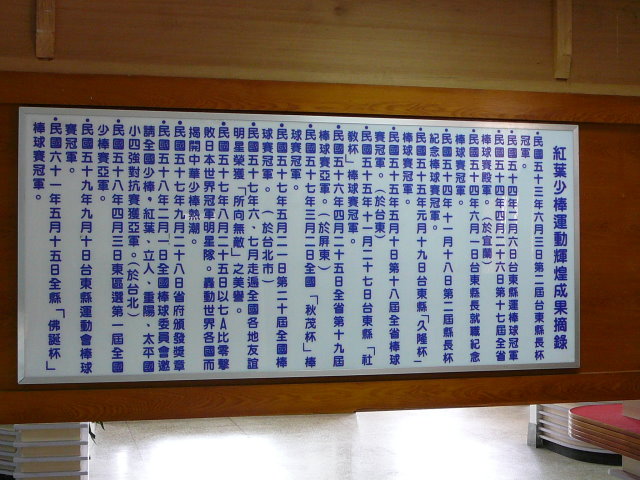 紅葉少棒運動輝煌成果摘錄
•民國五十三年六月三日第二屆台東縣長杯
冠軍。
•民國五十四年二月六日台東縣運棒球冠軍
•民國五十四年四月二十六日第十七屆全省
棒球賽殿軍。(於宜蘭)
•民國五十四年六月一日台東縣長就職紀念
棒球賽冠軍。
•民國五十四年十一月十八日第二屆縣長杯
紀念棒球賽冠軍。
•民國五十五年元月十九日台東縣「久隆杯」
棒球賽冠軍。
•民國五十五年五月十日第十八屆全省棒球
賽冠軍。(於台東)
•民國五十五年十一月二十七日台東縣「社
教杯」棒球賽冠軍。
•民國五十六年四月二十五日全省第十九屆
棒球賽亞軍。(於屏東)
•民國五十七年三月二日全國「秋茂杯」棒
球賽冠軍。
•民國五十七年五月二十一日第二十屆全國棒
球賽冠軍。(於台北市)
•民國五十七年六、七月走遍全國各地友誼
明星榮獲「所向無敵」之美譽。
•民國五十七年八月二十五日以七A比零擊
敗日本世界冠軍明星隊。轟動世界各國而
揭開中華少棒熱潮。
•民國五十七年九月二十八日省府頒發獎章
•民國五十八年二月一日全國棒球委員會邀
請全國少棒,紅葉、立人、重陽、太平國
小四強對抗賽獲亞軍。(於台北)
•民國五十八年四月三日東區選第一屆全國
少棒賽亞軍。
•民國五十九年九月十日台東縣運動會棒球
賽冠軍。
•民國六十一年五月十五日全縣「佛誕杯」
棒球賽冠軍。